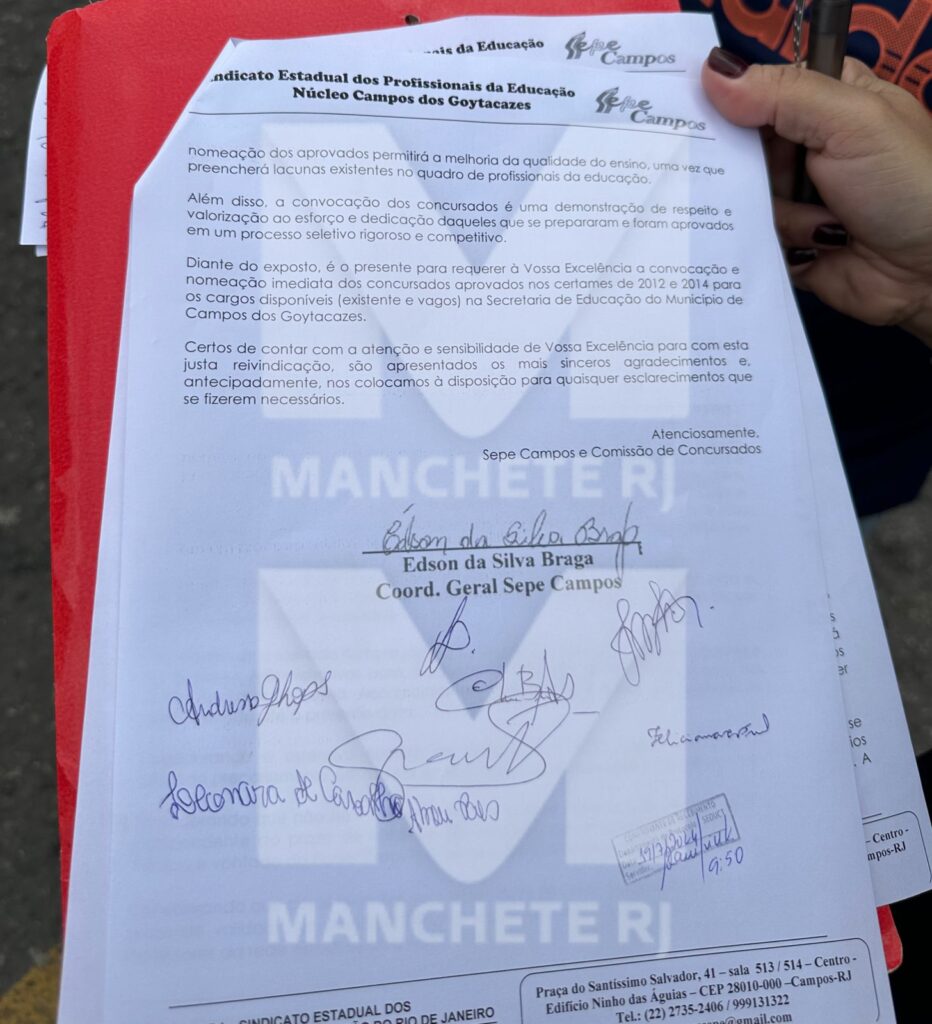 ais da Educação
Sepe
Campos
ndicato Estadual dos Profissionais da Educação
Núcleo Campos dos Goytacazes
Sepe
Campos
nomeação dos aprovados permitirá a melhoria da qualidade do ensino, uma vez que
preencherá lacunas existentes no quadro de profissionais da educação.
Além disso, a convocação dos concursados é uma demonstração de respeito e
valorização ao esforço e dedicação daqueles que se prepararam e foram aprovados
em um processo seletivo rigoroso e competitivo.
Diante do exposto, é o presente para requerer à Vossa Excelência a convocação e
nomeação imediata dos concursados aprovados nos certames de 2012 e 2014 para
os cargos disponíveis (existente e vagos) na Secretaria de Educação do Município de
Campos dos Goytacazes.
Certos de contar com a atenção e sensibilidade de Vossa Excelência para com esta
justa reivindicação, são apresentados os mais sinceros agradecimentos e,
antecipadamente, nos colocamos à disposição para quaisquer esclarecimentos que
se fizerem necessários.
Atenciosamente,
Sepe Campos e Comissão de Concursados
MANCHETE RJ
Edson da Silva Braga
Edson da Silva Braga
Coord. Geral Sepe Campos
Leonara de Carvalho
SEDUCT
19/7/2024
9:50
se
ios
. A
MANCHETE RJ
Centro -
mpos-RJ
Praça do Santíssimo Salvador, 41 – sala 513 / 514 – Centro -
Edifício Ninho das Águias – CEP 28010-000 –Campos-RJ
Tel.: (22) 2735-2406 / 999131322
@gmail.com
SINDICATO ESTADUAL DOS
DO RIO DE JANEIRO